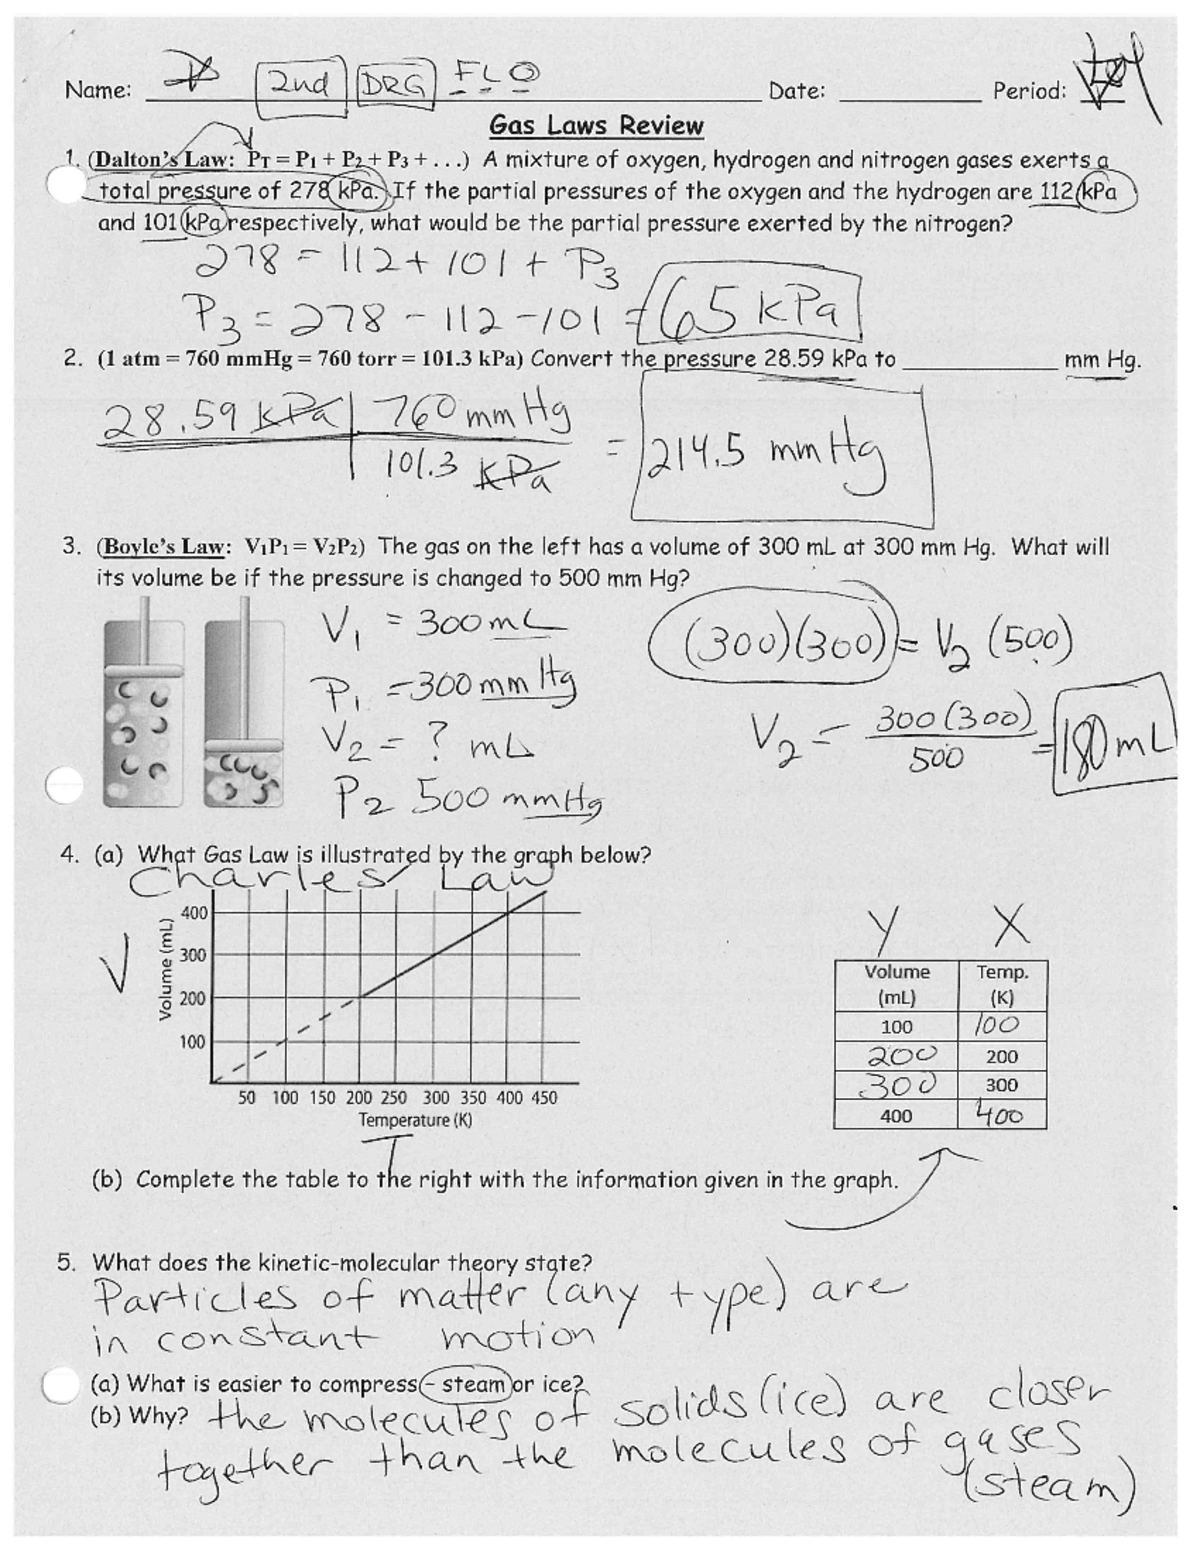 Name: 2nd DRG FLO Date: Period: Key
Gas Laws Review
1. (Dalton's Law: PT = P1 + P2 + P3 + . . .) A mixture of oxygen, hydrogen and nitrogen gases exerts a
total pressure of 278 kPa. If the partial pressures of the oxygen and the hydrogen are 112 kPa
and 101 kPa respectively, what would be the partial pressure exerted by the nitrogen?
278 = 112 + 101 + P3
P3 = 278 - 112 - 101 = 65 kPa
2. (1 atm = 760 mmHg = 760 torr = 101.3 kPa) Convert the pressure 28.59 kPa to __________ mm Hg.
28.59 kPa | 760 mm Hg
101.3 kPa
= 214.5 mm Hg
3. (Boyle's Law: V1P1 = V2P2) The gas on the left has a volume of 300 mL at 300 mm Hg. What will
its volume be if the pressure is changed to 500 mm Hg?
V1 = 300 mL
P1 = 300 mm Hg
V2 = ? mL
P2 500 mmHg
(300)(300) = V2 (500)
V2 = 300(300) / 500 = 180 mL
4. (a) What Gas Law is illustrated by the graph below?
Charles' Law
V
Volume (mL)
400
300
200
100
50 100 150 200 250 300 350 400 450
Temperature (K)
T
Y X
Volume (mL) Temp. (K)
100 100
200 200
300 300
400 400
(b) Complete the table to the right with the information given in the graph.
5. What does the kinetic-molecular theory state?
Particles of matter (any type) are
in constant motion
(a) What is easier to compress - steam or ice?
(b) Why? the molecules of solids (ice) are closer
together than the molecules of gases
(steam)